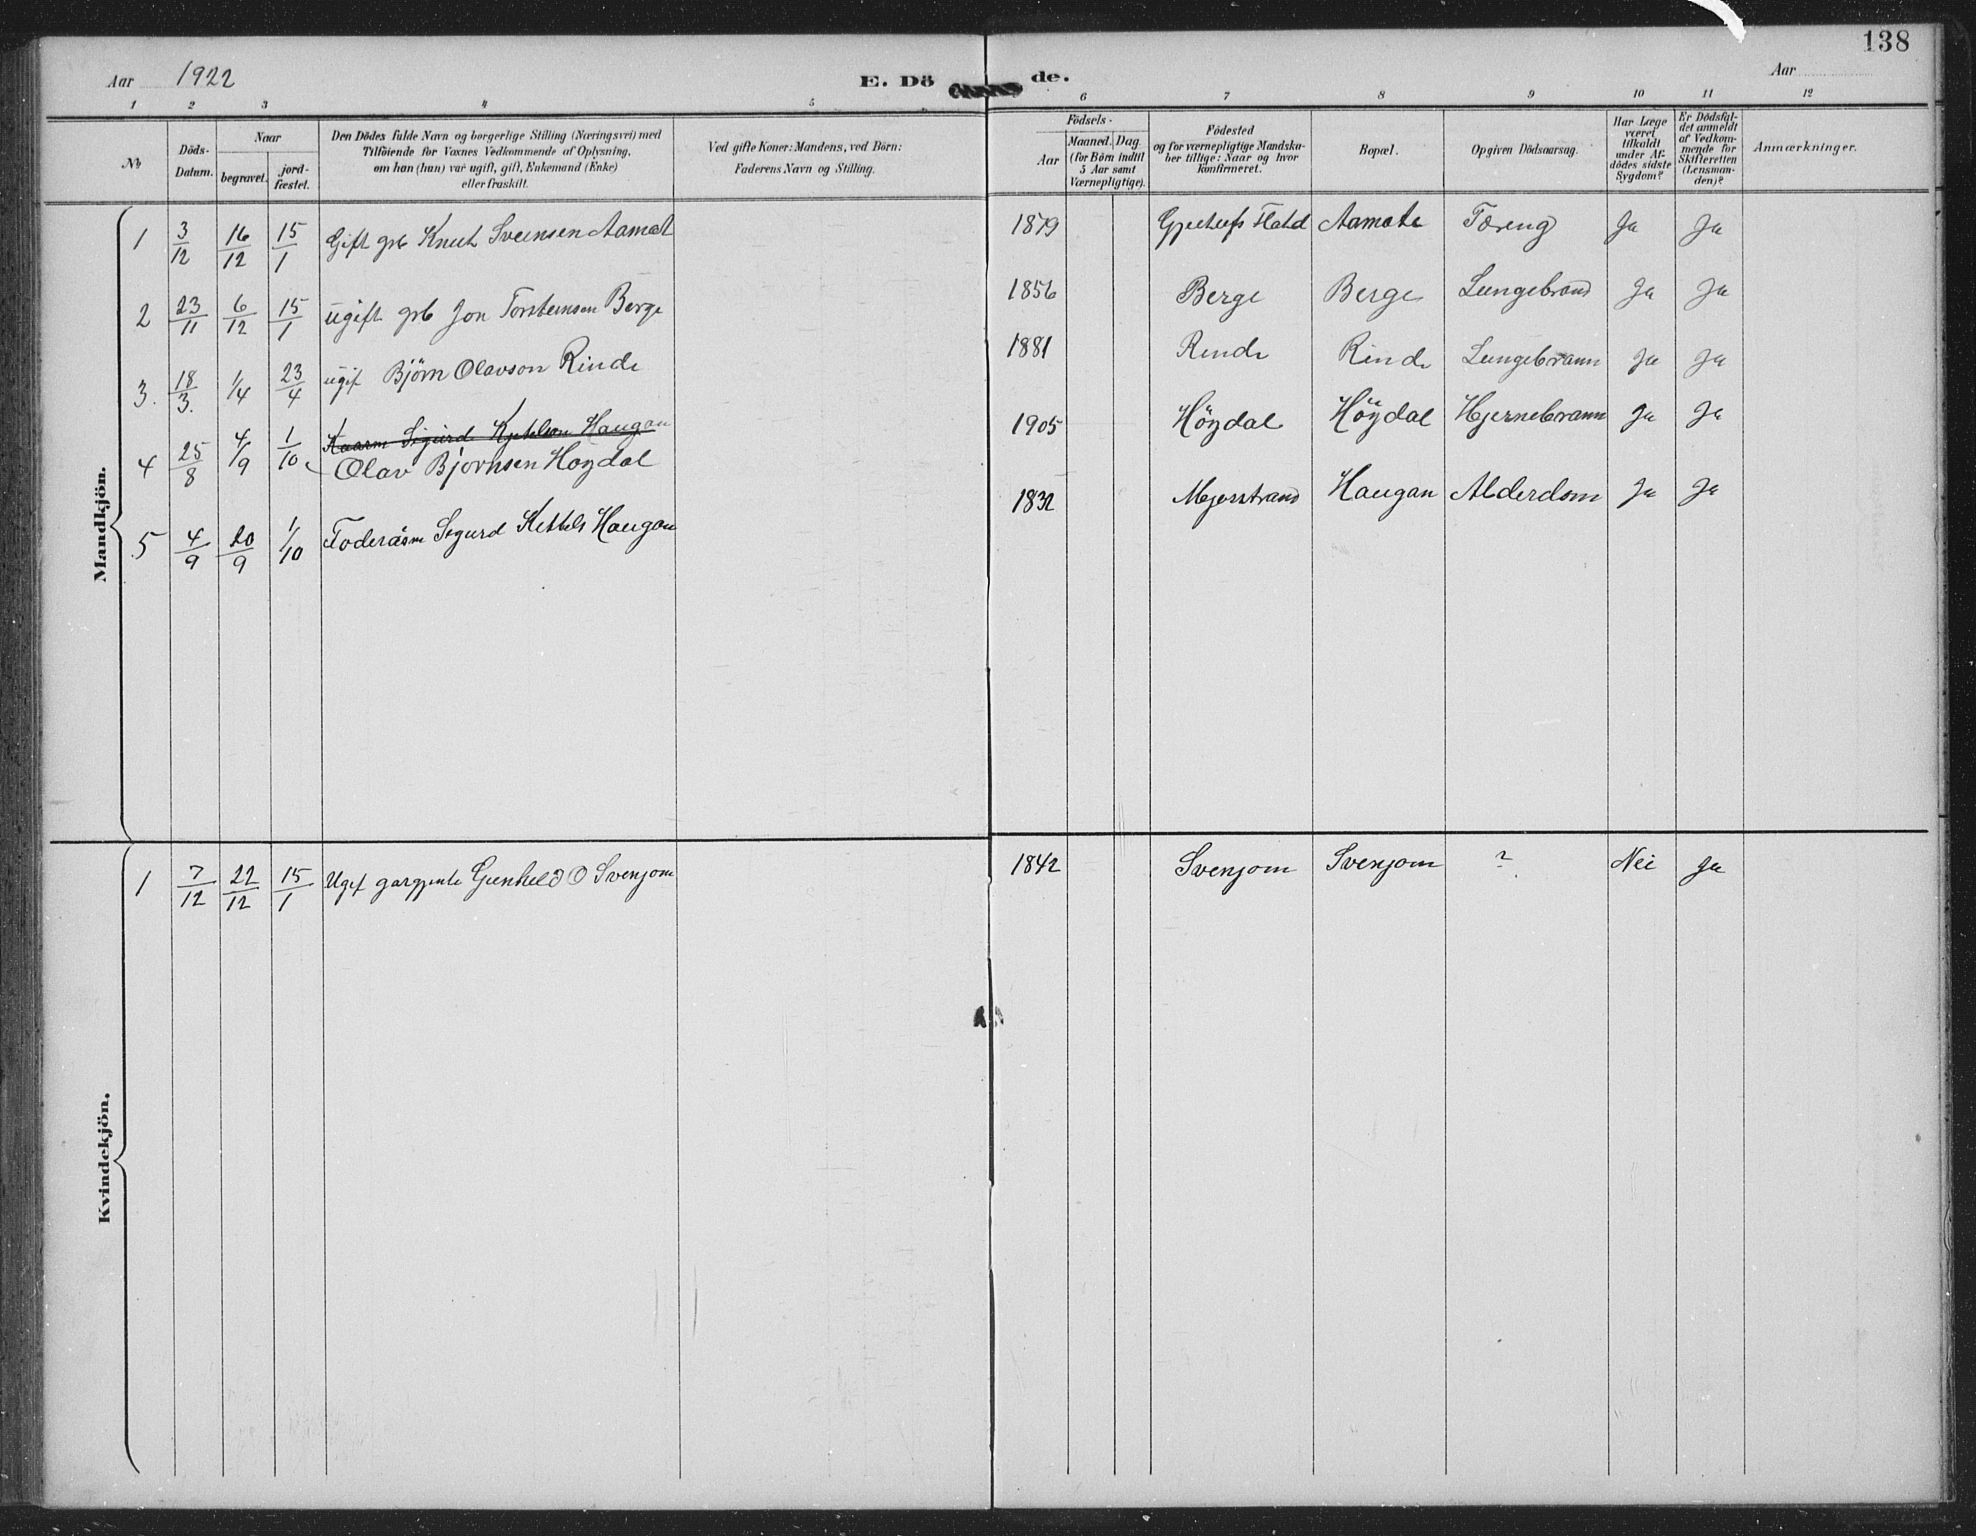 138
Aar 1922
E. Dö de.
Aar
1 2 3 4 5 6 7 8 9 10 11 12
No
Döds-Datum.
Naar
begravet.
jord-fæstet.
Den Dödes fulde Navn og borgerlige Stilling (Næringsvei) med
Tilföiende for Voxnes Vedkommende af Oplysning,
om han (hun) var ugift, gift, Enkemand (Enke)
eller fraskilt.
Ved gifte Koner: Mandens, ved Börn:
Faderens Navn og Stilling.
Födsels-
Aar
Maaned. Dag
(for Börn indtil
5 Aar samt
Værnepligtige).
Födested
og for værnepligtige Mandska-
ber tillige: Naar og hvor
konfirmeret.
Bopæl.
Opgiven Dödsaarsag.
Har Læge
været
tilkaldt
under Af-
dödes sidste
Sygdom?
Er Dödsfal-
det anmeldt
af Vedkom-
mende for
Skifteretten
(Lensman-
den)?
Anmærkninger.
Mandkjön.
1 3/12 16/12 15/1 Gift grb Knut Sveinsen Aamot 1879 Aamote Tæreng Ja Ja
2 23/11 6/12 15/1 ugift grb Jon Torsteinsen Berge 1856 Berge Berge Lungebrand Ja Ja
3. 18/3. 1/4 23/4 ugif Björn Olavson Rinde 1881 Rinde Rinde Lungebrann Ja Ja
Sigurd Kjetelson Haugan
4 25/8 4/9 1/10 Olav Bjornsen Höydal 1905 Höydal Höydal Hjernebrann Ja Ja
5 4/9 20/9 1/10 Sigurd Kettels Haugan 1832 Mjosstrand Haugan Alderdom Ja Ja
Kvindekjön.
1 7/12 22/12 15/1 Ugif gargjente Gunheld O Svenjom 1842 Svenjom Svenjom ? Nei Ja